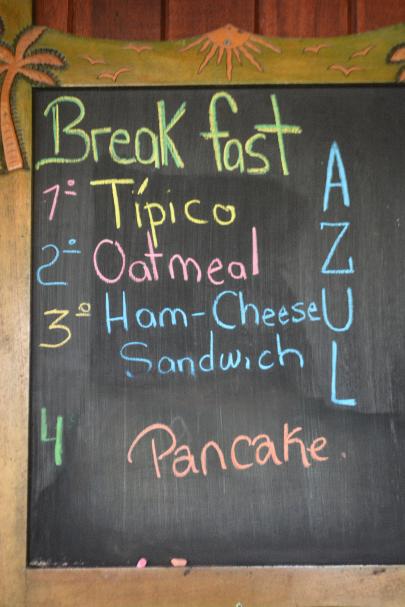 Breakfast
1º Típico
2º Oatmeal
3º Ham-Cheese
Sandwich
4 Pancake.
AZUL